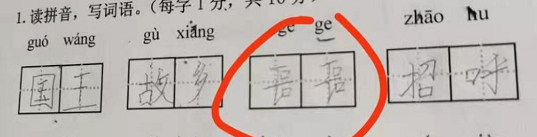 1. 读拼音，写词语。（每字 1 分，共
guó wáng gù xiāng gē ge zhāo hu
国王 故乡 招呼